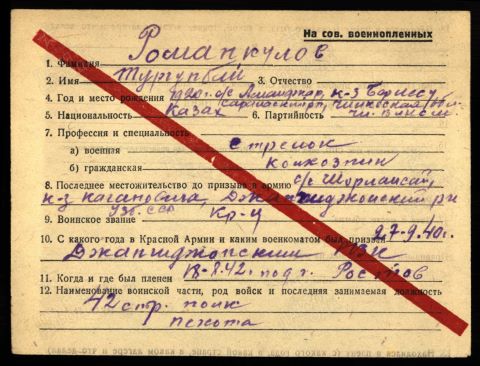 На сов. военнопленных
1. Фамилия Романкулов
2. Имя Тургунбай 3. Отчество
4. Год и место рождения 1920 г. с/с к-з
5. Национальность Казах 6. Партийность чл. ВЛКСМ
7. Профессия и специальность
а) военная стрелок
б) гражданская колхозник
8. Последнее местожительство до призыва в армию с/с
к-з Кагановича,
Узб. ССР
9. Воинское звание Кр-ц
10. С какого года в Красной Армии и каким военкоматом был призван 27-9.40 г.
РВК
11. Когда и где был пленен 18-8.42 г. под г. Ростов
12. Наименование воинской части, род войск и последняя занимаемая должность
42 стр. полк
пехота